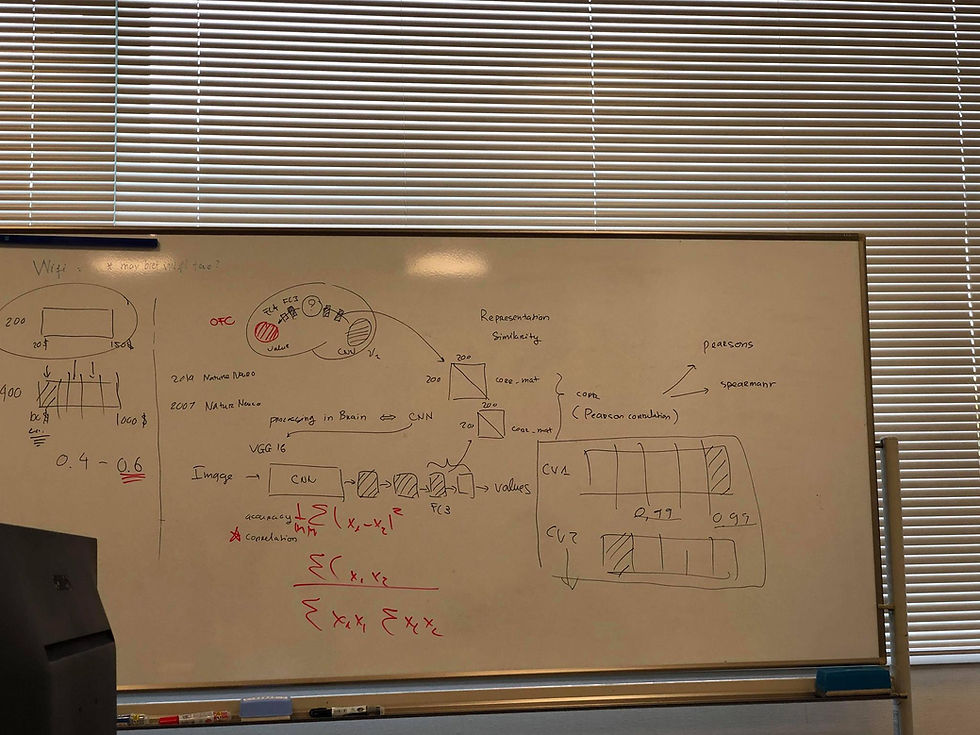 Wifi =
200
20$ 150$
400
100$ 1000$
0.4 - 0.6
OFC
FC4 FC3
?
value
CNN
2019 Nature Neuro
2007 Nature Neuro
processing in Brain ⇔ CNN
VGG 16
Image → CNN → FC3 → values
accuracy 1/N Σ(x₁-x₂)²
* correlation
Σ(x₁x₂
Σ x₁x₁ Σ x₂x₂
Representation
Similarity
200
200 corr_mat
200
20 corr_mat
corr
(Pearson correlation)
pearsons
spearmann
CV1
0,99 0,99
CV2